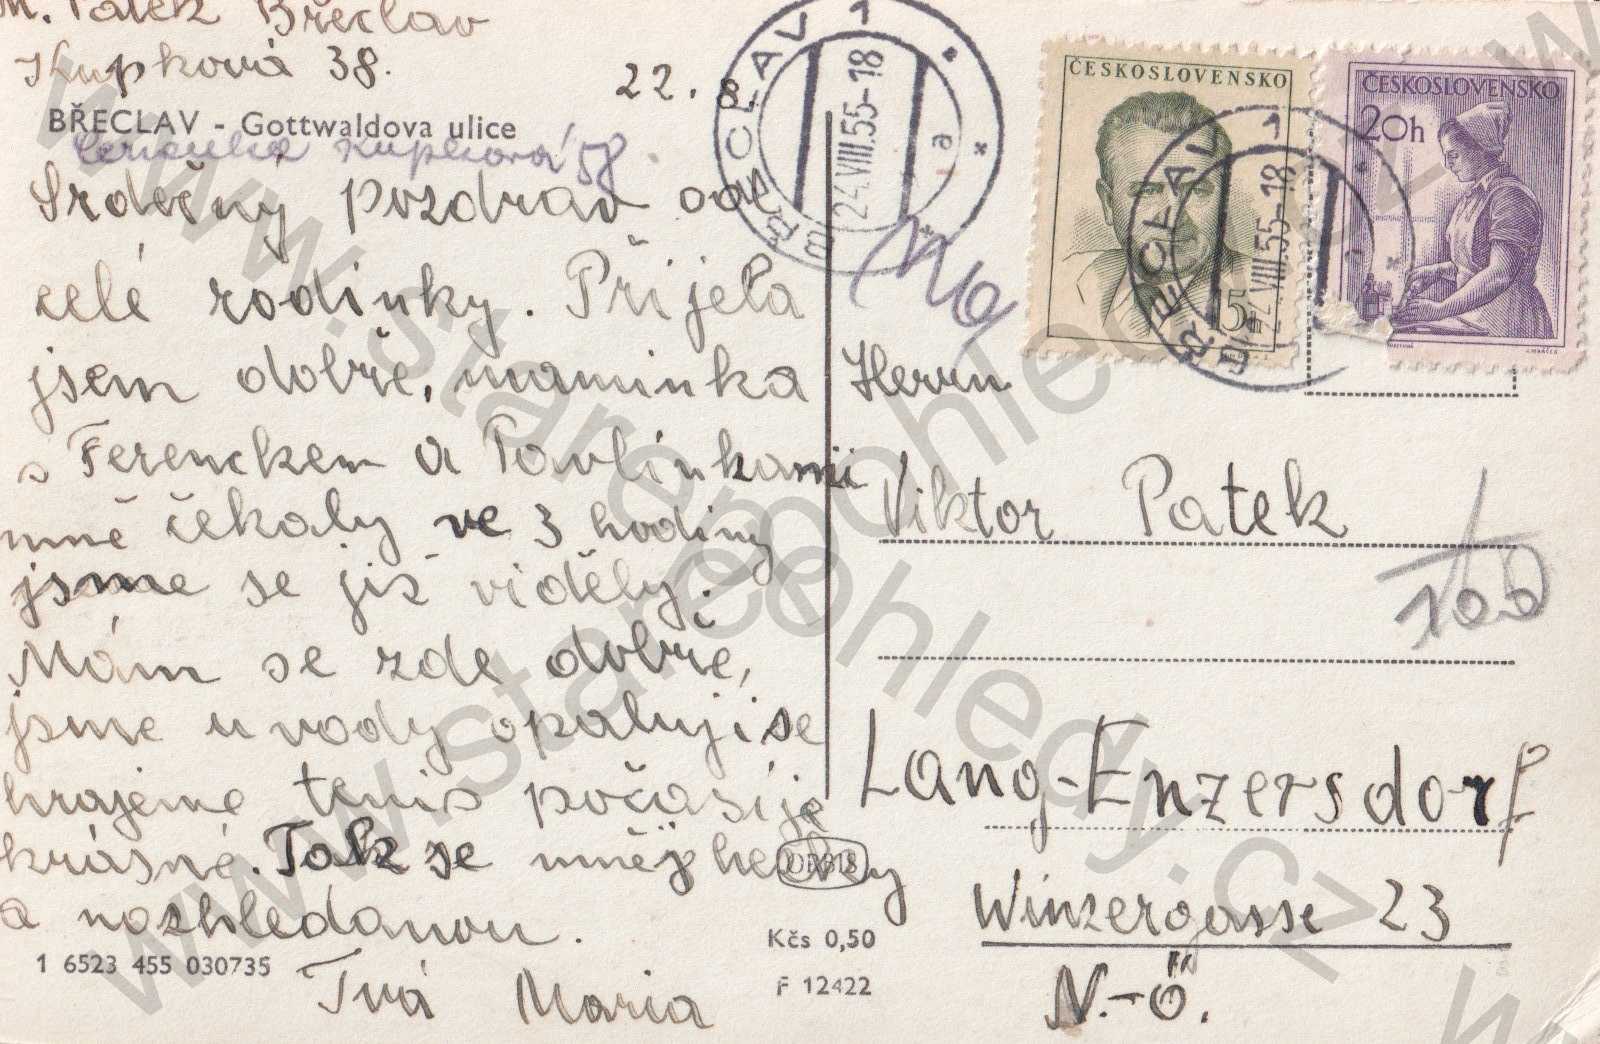 M. Patek Břeclav
Kupková 38.
22. 8.
BŘECLAV - Gottwaldova ulice
Kupková 58
Srdečný pozdrav od
celé rodinky. Přijela
jsem dobře, maminka
s Ferenckem a Pavlínkami
mně čekaly ve 3 hodiny
jsme se již viděly.
Mám se zde dobře,
jsme u vody opaluji se
hrajeme tenis počasí je
krásné. Tak se měj hezky
a nazhledanou.
Tvá Maria
1 6523 455 030735
ORBIS
Kčs 0,50
F 12422
BŘECLAV 1
24.VIII.55-18
a
ČESKOSLOVENSKO
15h
ČESKOSLOVENSKO
20h
BŘECLAV 1
24.VIII.55-18
Herrn
Viktor Patek
100
Lang-Enzersdorf
Winzergasse 23
N.-Ö.
www.starepohledy.cz
www.starepohledy.cz